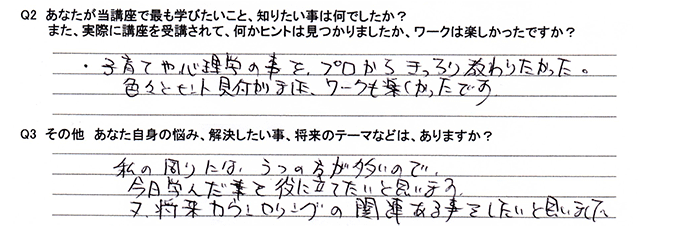 Q2 あなたが当講座で最も学びたいこと、知りたい事は何でしたか？
また、実際に講座を受講されて、何かヒントは見つかりましたか、ワークは楽しかったですか？
・子育てや心理学の事を、プロから きっちり教わりたかった。
色々とヒント見付かりました、ワークも楽しかったです
Q3 その他 あなた自身の悩み、解決したい事、将来のテーマなどは、ありますか？
私の周りには、うつの方が多いので、
今日学んだ事を役に立てたいと思います。
又、将来カウンセリングの関連ある事をしたいと思いまして、